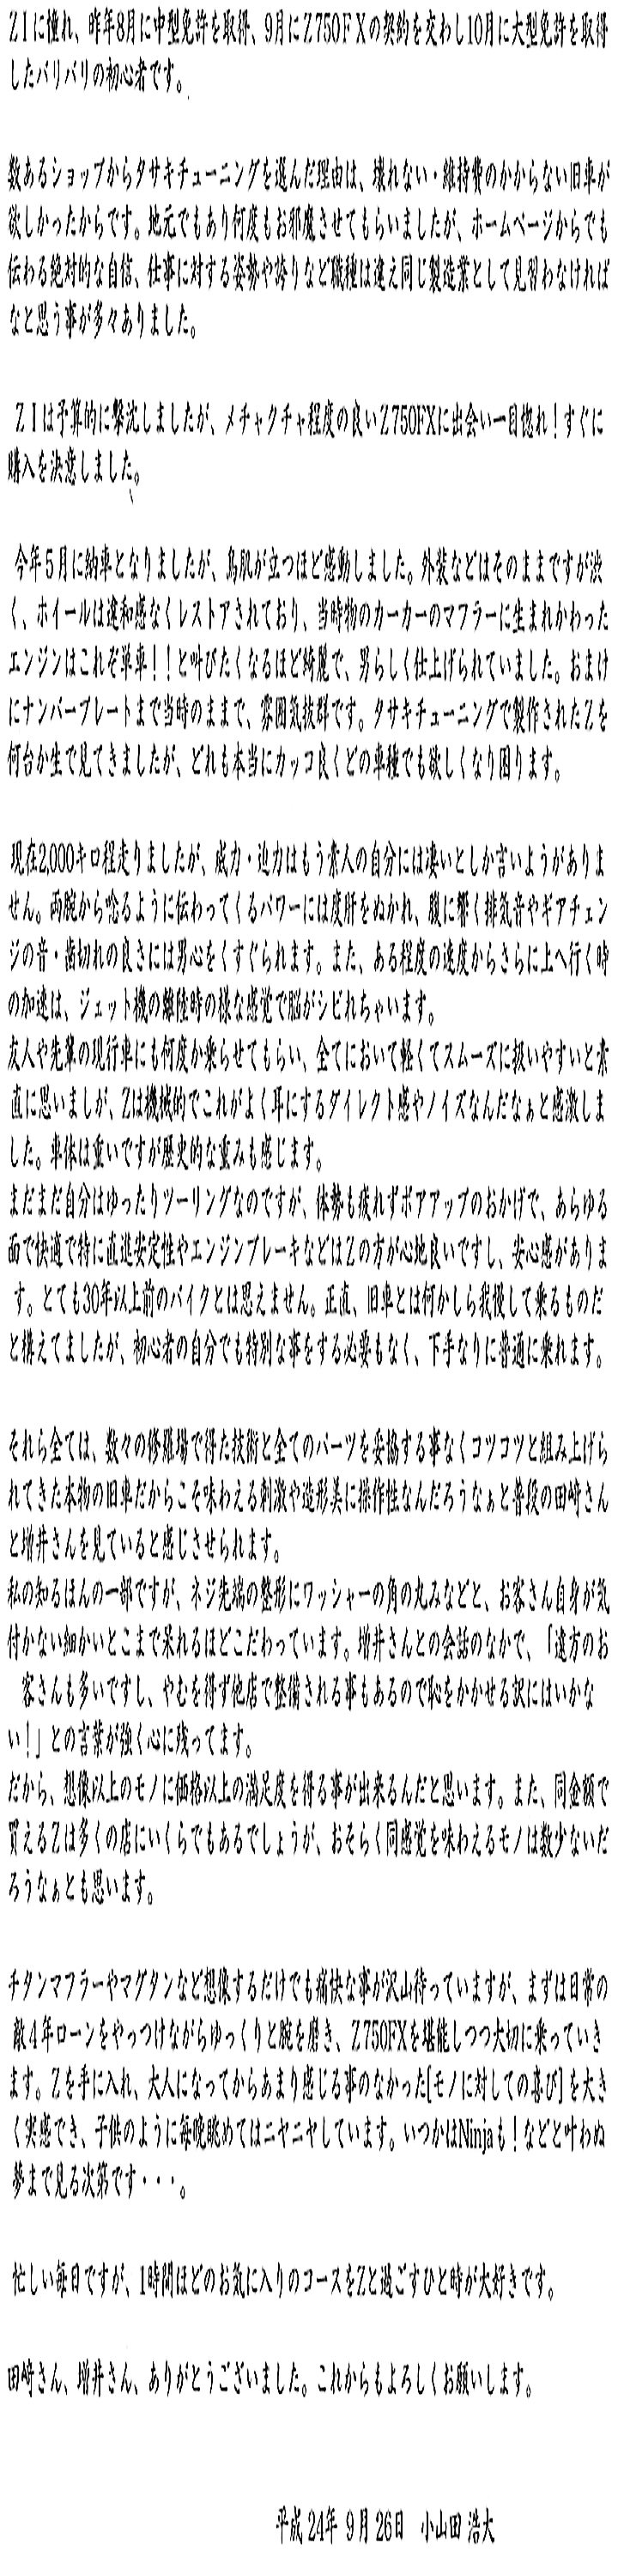 Z1に憧れ、昨年8月に中型免許を取得、9月にZ750FXの契約を交わし10月に大型免許を取得
したバリバリの初心者です。
数あるショップからタサキチューニングを選んだ理由は、壊れない・維持費のかからない旧車が
欲しかったからです。地元でもあり何度もお邪魔させてもらいましたが、ホームページからでも
伝わる絶対的な自信、仕事に対する姿勢や誇りなど職種は違え同じ製造業として見習わなければ
なと思う事が多々ありました。
Z1は予算的に撃沈しましたが、メチャクチャ程度の良いZ750FXに出会い一目惚れ！すぐに
購入を決意しました。
今年5月に納車となりましたが、鳥肌が立つほど感動しました。外装などはそのままですが渋
く、ホイールは違和感なくレストアされており、当時物のカーカーのマフラーに生まれかわった
エンジンはこれぞ単車！！と叫びたくなるほど綺麗で、男らしく仕上げられていました。おまけ
にナンバープレートまで当時のままで、雰囲気抜群です。タサキチューニングで製作されたZを
何台か生で見てきましたが、どれも本当にカッコ良くどの車種でも欲しくなり困ります。
現在2,000キロ程走りましたが、威力・迫力はもう素人の自分には凄いとしか言いようがありま
せん。両腕から唸るように伝わってくるパワーには度肝をぬかれ、腹に響く排気音やギアチェン
ジの音・歯切れの良さには男心をくすぐられます。また、ある程度の速度からさらに上へ行く時
の加速は、ジェット機の離陸時の様な感覚で脳がシビれちゃいます。
友人や先輩の現行車にも何度か乗らせてもらい、全てにおいて軽くてスムーズに扱いやすいと素
直に思いましが、Zは機械的でこれがよく耳にするダイレクト感やノイズなんだなぁと感激しま
した。車体は重いですが歴史的な重みも感じます。
まだまだ自分はゆったりツーリングなのですが、体勢も疲れずボアアップのおかげで、あらゆる
面で快適で特に直進安定性やエンジンブレーキなどはZの方が心地良いですし、安心感がありま
す。とても30年以上前のバイクとは思えません。正直、旧車とは何かしら我慢して乗るものだ
と構えてましたが、初心者の自分でも特別な事をする必要もなく、下手なりに普通に乗れます。
それら全ては、数々の修羅場で得た技術と全てのパーツを妥協する事なくコツコツと組み上げら
れてきた本物の旧車だからこそ味わえる刺激や造形美に操作性なんだろうなぁと普段の田﨑さん
と増井さんを見ていると感じさせられます。
私の知るほんの一部ですが、ネジ先端の整形にワッシャーの角の丸みなどと、お客さん自身が気
付かない細かいとこまで呆れるほどこだわっています。増井さんとの会話のなかで、「遠方のお
客さんも多いですし、やむを得ず他店で整備される事もあるので恥をかかせる訳にはいかな
い！」との言葉が強く心に残ってます。
だから、想像以上のモノに価格以上の満足度を得る事が出来るんだと思います。また、同金額で
買えるZは多くの店にいくらでもあるでしょうが、おそらく同感覚を味わえるモノは数少ないだ
ろうなぁとも思います。
チタンマフラーやマグタンなど想像するだけでも痛快な事が沢山待っていますが、まずは日常の
敵4年ローンをやっつけながらゆっくりと腕を磨き、Z750FXを堪能しつつ大切に乗っていき
ます。Zを手に入れ、大人になってからあまり感じる事のなかった[モノに対しての喜び]を大き
く実感でき、子供のように毎晩眺めてはニヤニヤしています。いつかはNinjaも！などと叶わぬ
夢まで見る次第です・・・。
忙しい毎日ですが、1時間ほどのお気に入りのコースをZと過ごすひと時が大好きです。
田﨑さん、増井さん、ありがとうございました。これからもよろしくお願いします。
平成24年 9月26日 小山田 浩大